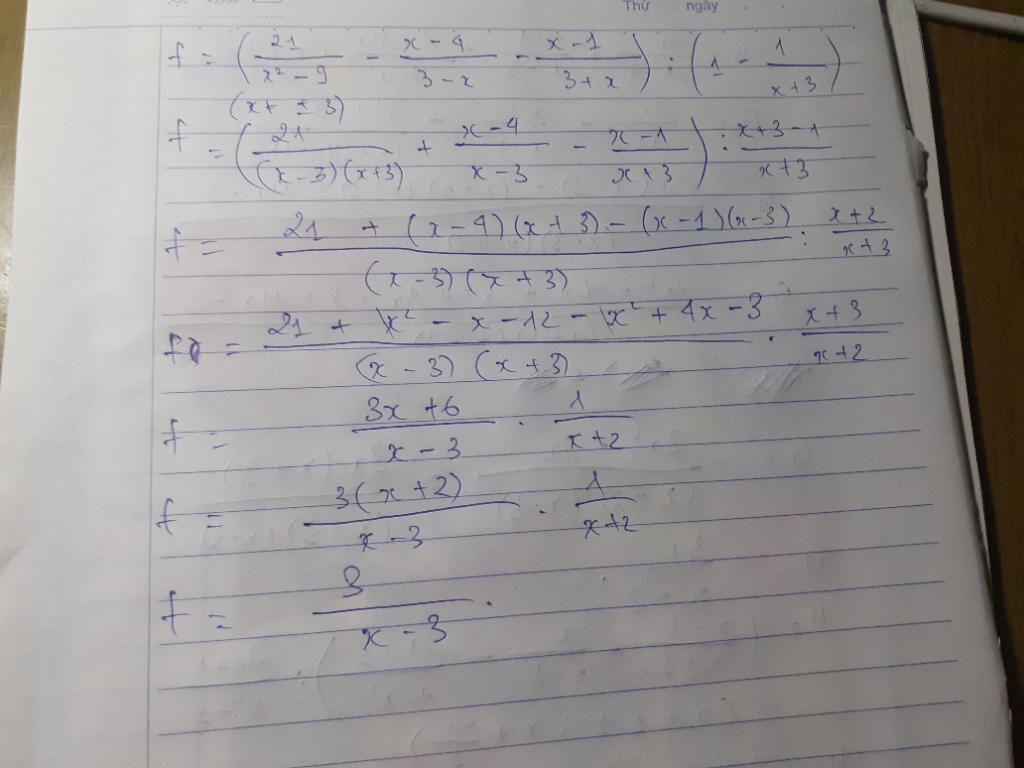 Thứ ngày
f = (21/(x² - 9) - (x - 4)/(3 - x) - (x - 1)/(3 + x)) : (1 - 1/(x + 3))
(x ≠ ± 3)
f = (21/((x - 3)(x + 3)) + (x - 4)/(x - 3) - (x - 1)/(x + 3)) : (x + 3 - 1)/(x + 3)
f = (21 + (x - 4)(x + 3) - (x - 1)(x - 3))/((x - 3)(x + 3)) : (x + 2)/(x + 3)
f = (21 + x² - x - 12 - x² + 4x - 3)/((x - 3)(x + 3)) . (x + 3)/(x + 2)
f = (3x + 6)/(x - 3) . 1/(x + 2)
f = 3(x + 2)/(x - 3) . 1/(x + 2)
f = 3/(x - 3) .